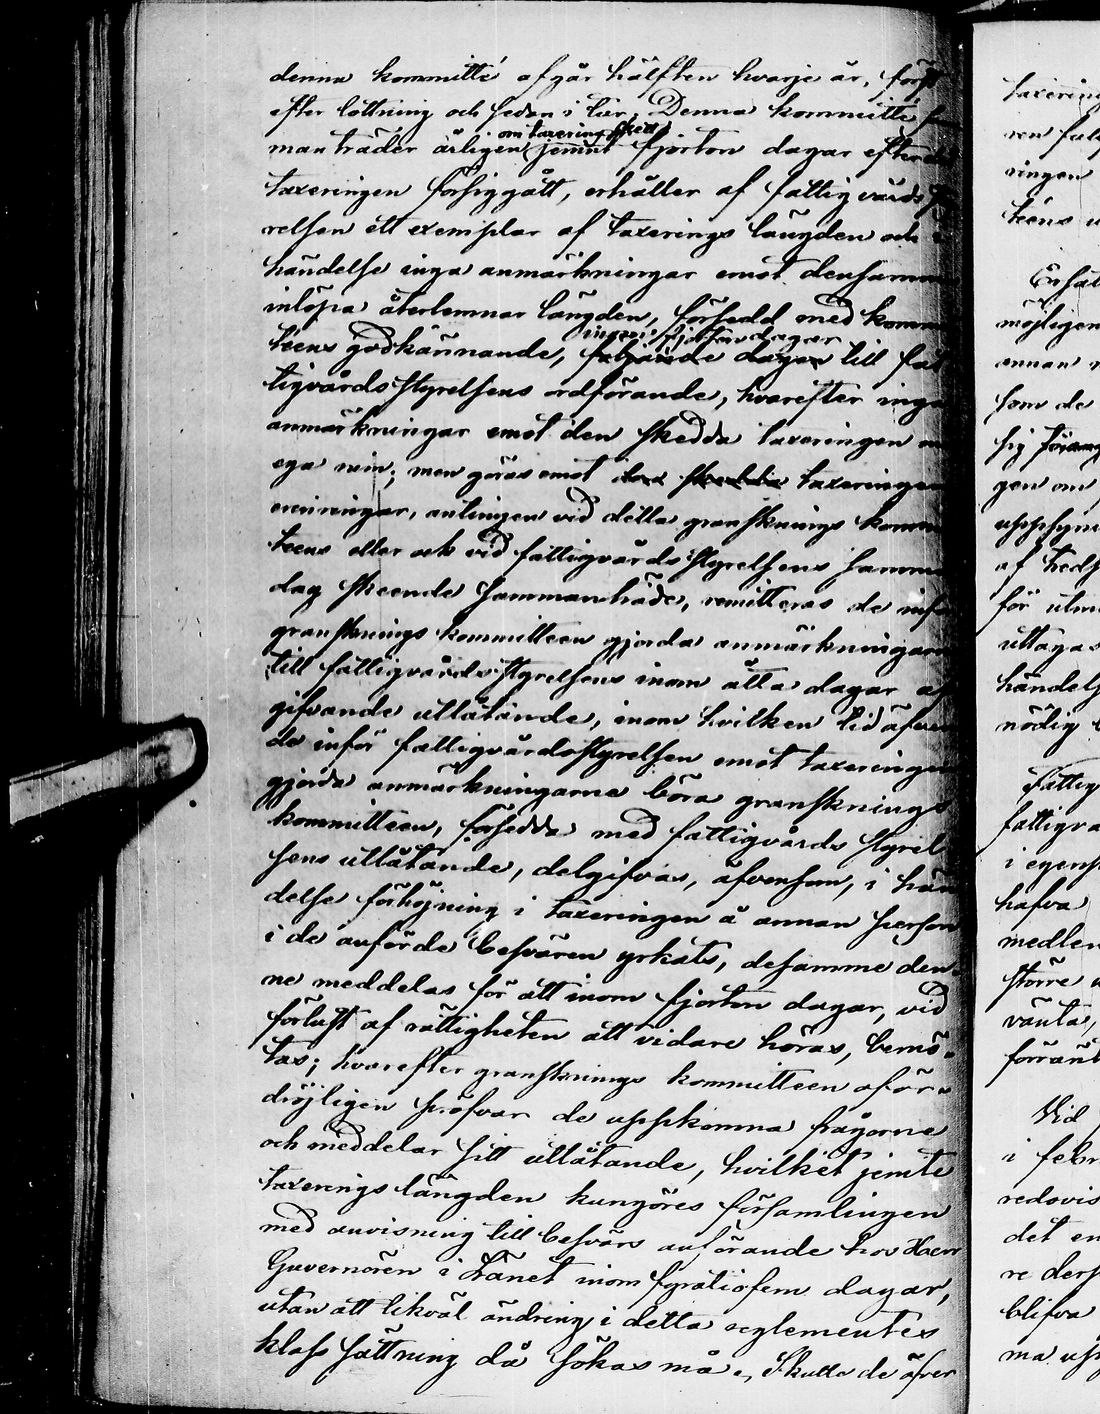 denna kommitté afgår hälften hvarje år, först
efter lottning och sedan i tur, Denna kommitté
om taxering skett
manträder årligen jemnt fjorton dagar efter det
taxeringen försiggått, erhåller af fattigvårds
relsen ett exemplar af taxerings längden och i
händelse inga anmärkningar emot densamma
inlöpa återlemnar längden, försedd med komm
inom fjorton dagar
téens godkännande, följande dagen till fat
tigvårdsstyrelsens ordförande, hvarefter inga
anmärkningar emot den skedda taxeringen
ega rum; men göras emot den skedda taxeringen
erinringar, antingen vid detta gransknings komm
téens eller ock vid fattigvårdsstyrelsens samma
dag skeende sammanträde, remitteras de inför
gransknings kommitteen gjorda anmärkningarne
till fattigvårdsstyrelsens inom åtta dagar af
gifvande utlåtande, inom hvilken tid äfven
de inför fattigvårdsstyrelsen emot taxeringen
gjorda anmärkningarne böra gransknings
kommitteen, försedda med fattigvårds styrel
sens utlåtande, delgifvas, äfvensom, i hän
delse förhöjning i taxeringen å annan person
i de anförde besvären yrkats, desamme den-
ne meddelas för att inom fjorton dagar, vid
förlust af rättigheten att vidare höras, bemö-
tas; hvarefter gransknings kommitteen oför-
dröjligen pröfvar de uppkomna frågorne
och meddelar sitt utlåtande, hvilket jemte
taxerings längden kungöres församlingen
med anvisning till besvärs anförande hos Herr
Guvernören i Länet inom fyratiofem dagar,
utan att likväl ändring i detta reglementes
klasssättning då sökas må. Skulle de öfver
taxering
ren
ringen
téens
möjligen
annan
som de
sig
gen om
uppsyn
af
för
uttagas
händels
nödig
Fattig
fattigvå
i egens
hafva
medlem
större
vänta,
förränt
Vid
i febr
redovis
det en
re ders
blifva
ma upp